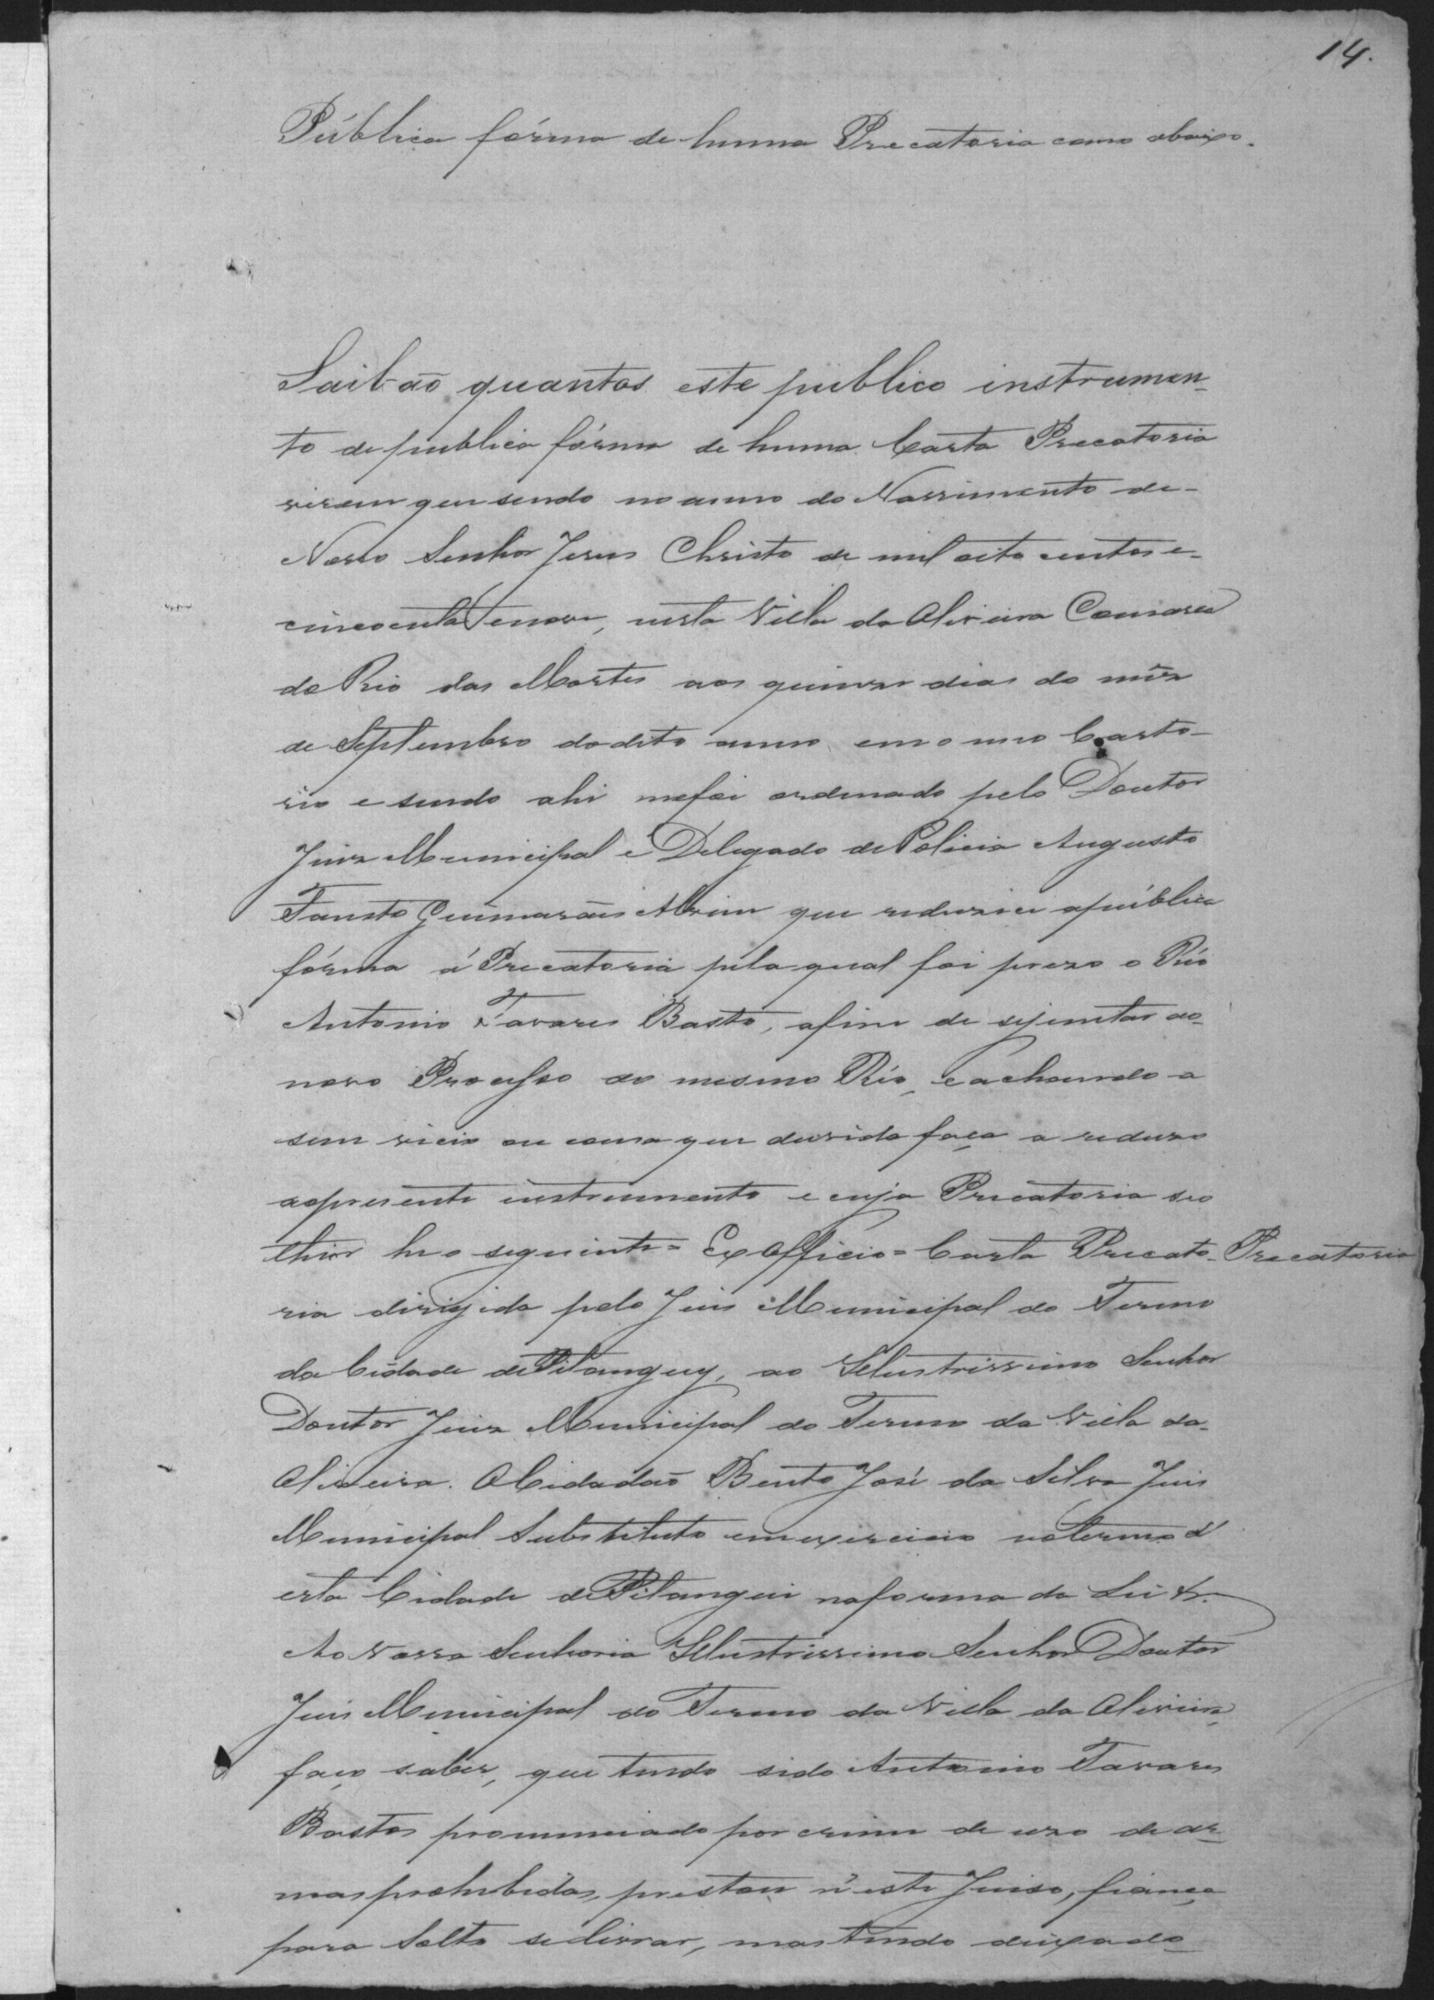 14.
Pública fórma de huma Precatoria como abaixo.
Saibão quantos este publico instrumen-
to de publica fórma de huma Carta Precatoria
virem que sendo no anno do Nascimento de-
Nosso Senhor Jesus Christo de mil oito centos e-
cincoenta e nove, nesta Villa da Oliveira Comarca
do Rio das Mortes aos quinze dias do mês
de Septembro do dito anno em o meo Carto-
rio e sendo ahi me foi ordenado pelo Doutor
Juiz Municipal e Delegado de Policia Augusto
Fausto Guimarães Alvim que reduzice apública
fórma á Precatoria pela qual foi prezo o Réo
Antonio Tavares Basto, afim de sejuntar ao-
novo Processo do mesmo Réo, e achando-a
sem vicio ou cousa que duvida faça a reduzo
ao presente instrumento e cuja Precatoria seo
thior he o seguinte = Ex Officio = Carta Precato-
Precatoria
ria dirigida pelo Juis Municipal do Termo
da Cidade de Pitanguy, ao Illustrissimo Senhor
Doutor Juiz Municipal do Termo da Villa da-
Oliveira. O Cidadão Bento José da Silva Juis
Municipal Substituto em exercicio no termo d'
esta Cidade de Pitangui na forma da Lei &.
Ao Vossa Senhoria Illustrissimo Senhor Doutor
Juis Municipal do Termo da Villa da Oliveira,
faço saber, que tendo sido Antonio Tavares
Bastos pronunciado por crime de uzo de ar-
mas prohibidas, prestou n'este Juiso, fiança
para Solto se livrar, mas tendo deixado